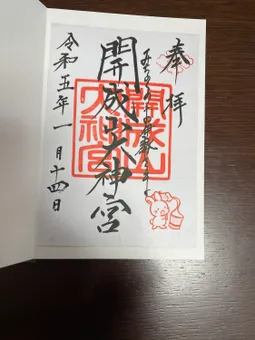 奉拝
開成山大神宮
令和五年一月十四日
開成山大神宮